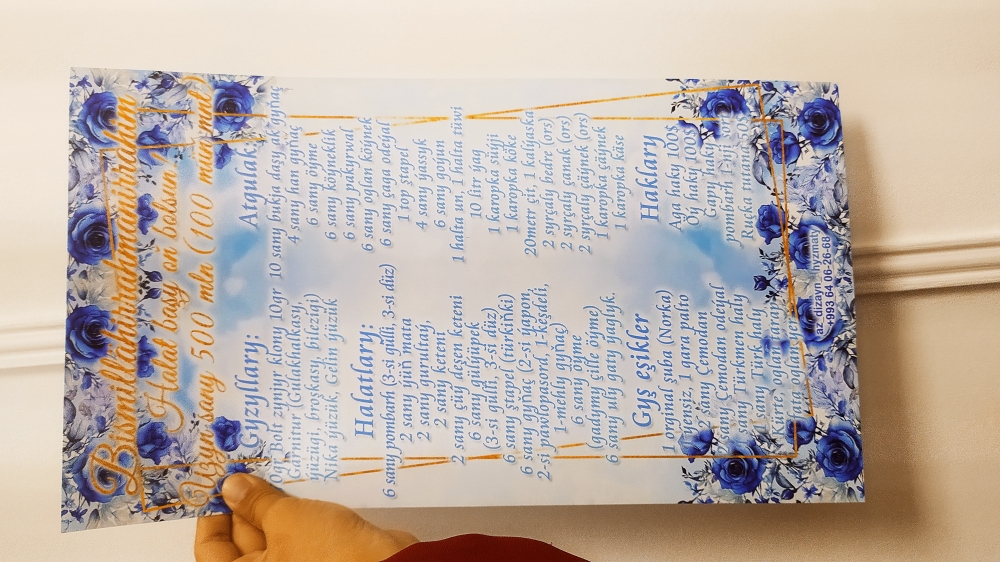 Bismillährahmanyrahym
Halat başy on bolsun ?
Ugyn sany 500 mln (100 mum mnt)
Gyzyllary:
Bolt zynjyr klony 10gr
Garnitur (Gülýakhalkasy
ýüzügi, broşkasy, bilezigi)
Nika ýüzük, Gelin ýüzük
Halatlary:
6 sany pombarh (3-si gülli, 3-si düz)
2 sany ýüň mata
2 sany gurultaý,
2 sany keteni
2 sany çüý deşen keteni
6 sany ştapek
(3-si gülli, 3-si düz)
6 sany ştapel (turkinki)
6 sany gyňaç (2-si ýapon,
2-si pawloposad, 1 keşdeli,
1 modny gyňaç)
6 sany öpme
(gadymy çile öpme)
6 sany el ýaglyk.
Gyş eşikler
1 orginal şuba (Norka)
ýeňsiz, 1 gara palto
sany Çemodan
sany Çemodan odeýal
sany Türkmen haly
sany Türk haly
Atgulak
10 sany bukja daşyk gyňaç
4 sany han gyňaç
6 sany öpme
6 sany köýneklik
6 sany pakyral
6 sany oglan köýnek
6 sany çaga odeýal
1 top ştapel
4 sany ýassyk
6 sany goýun
1 halta un, 1 halta tüwi
10 litr ýag
1 karopka süýji
1 karopka köke
20metr çit, 1 kalýaska
2 syrçaly bedre (ors)
2 syrçaly çanak (ors)
2 syrçaly çäýnek (ors)
1 karopka çäýnek
1 karopka käse
Haklary
Aga haky 100$
Oý haky 100$
Gapy haky
az_dizayn_hyzmaty
+993 64 06-26-68